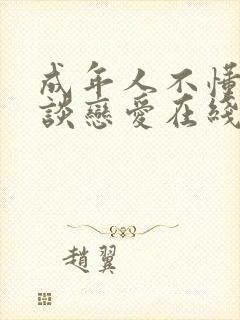 成年人不懂
談戀愛在綫
趙翼